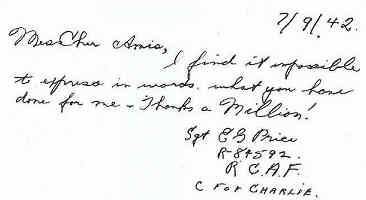 7/9/.42.
Mes Cher Amis,
I find it impossible
to express in words. what you have
done for me - Thanks a Million!
Sgt E G Price
R-84592.
R C.A.F.
C FOR CHARLIE.